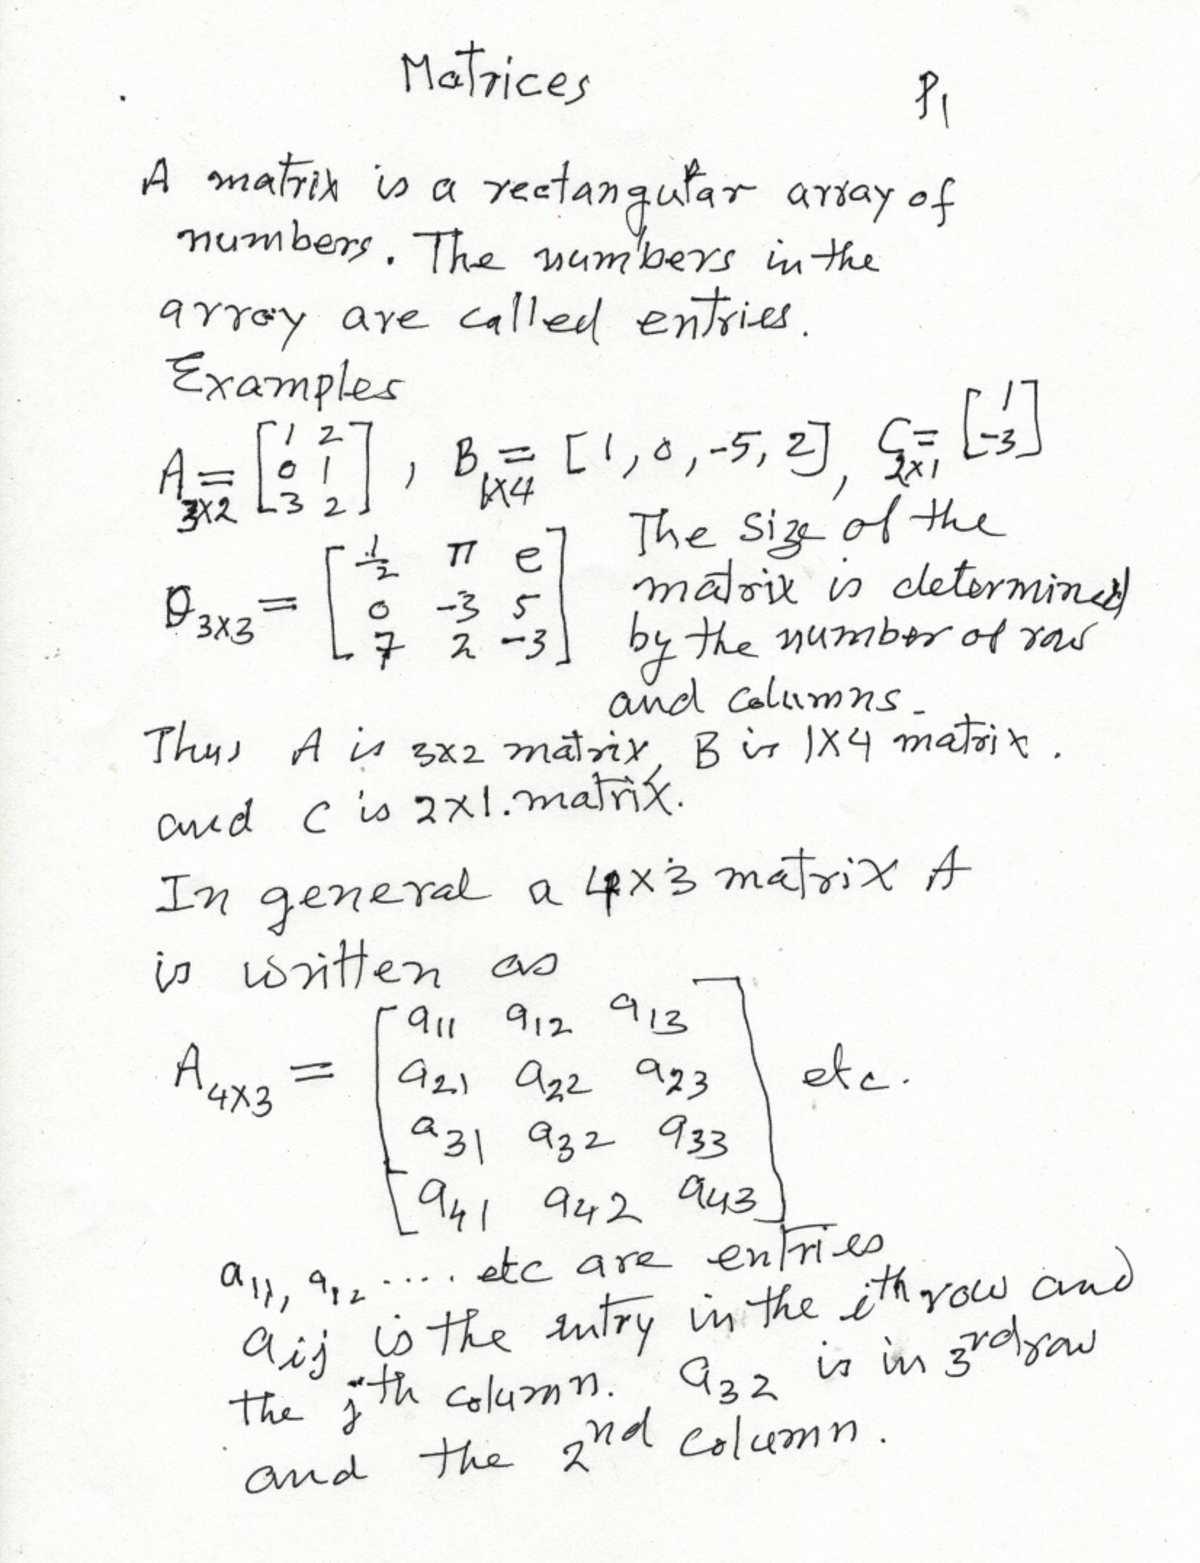 Matrices P1
A matrix is a rectangular array of
numbers. The numbers in the
array are called entries.
Examples
A 3x2 = [1 2; 0 1; 3 2], B 1x4 = [1, 0, -5, 2], C 2x1 = [1; -3]
D 3x3 = [1/2 π e; 0 -3 5; 7 2 -3]
The size of the
matrix is determined
by the number of row
and columns.
Thus A is 3x2 matrix, B is 1x4 matrix.
and C is 2x1. matrix.
In general a 4x3 matrix A
is written as
A 4x3 = [a11 a12 a13
a21 a22 a23
a31 a32 a33
a41 a42 a43] etc.
a11, a12 .... etc are entries
aij is the entry in the ith row and
the jth column. a32 is in 3rd row
and the 2nd column.